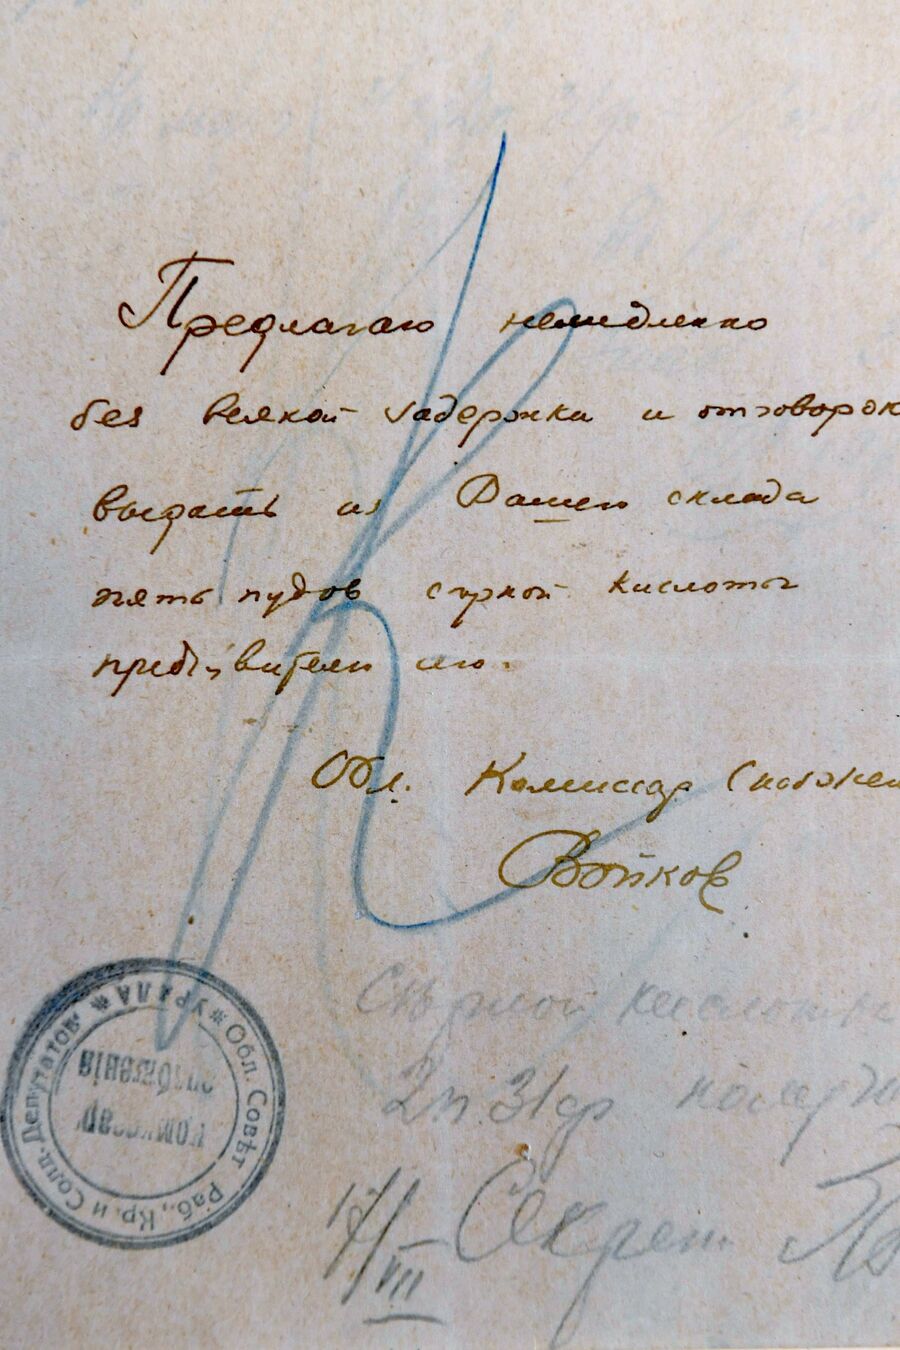 Предлагаю немедленно
без всякой задержки и отговорок
выдать из Вашего склада
пять пудов серной кислоты
предъявителю сего.
Обл. Комиссар Снабжен
Войков
Сѣрной кислоты
2п 31ф получ
17/VII Секрет.
Обл. Совѣт Раб., Кр. и Солд. Депутатов * УРАЛА *
Комиссар
снабженія